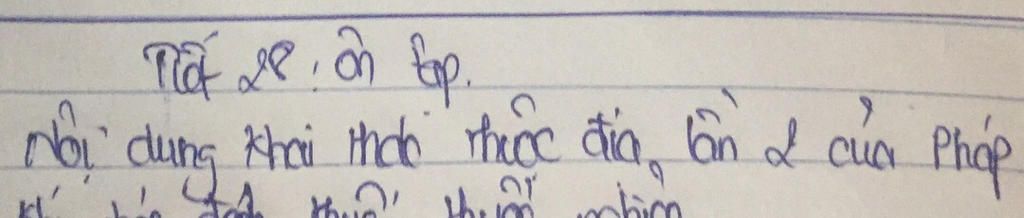 Tiết 28: ôn tập.
Nội dung khai thác thuộc địa lần 2 của Pháp